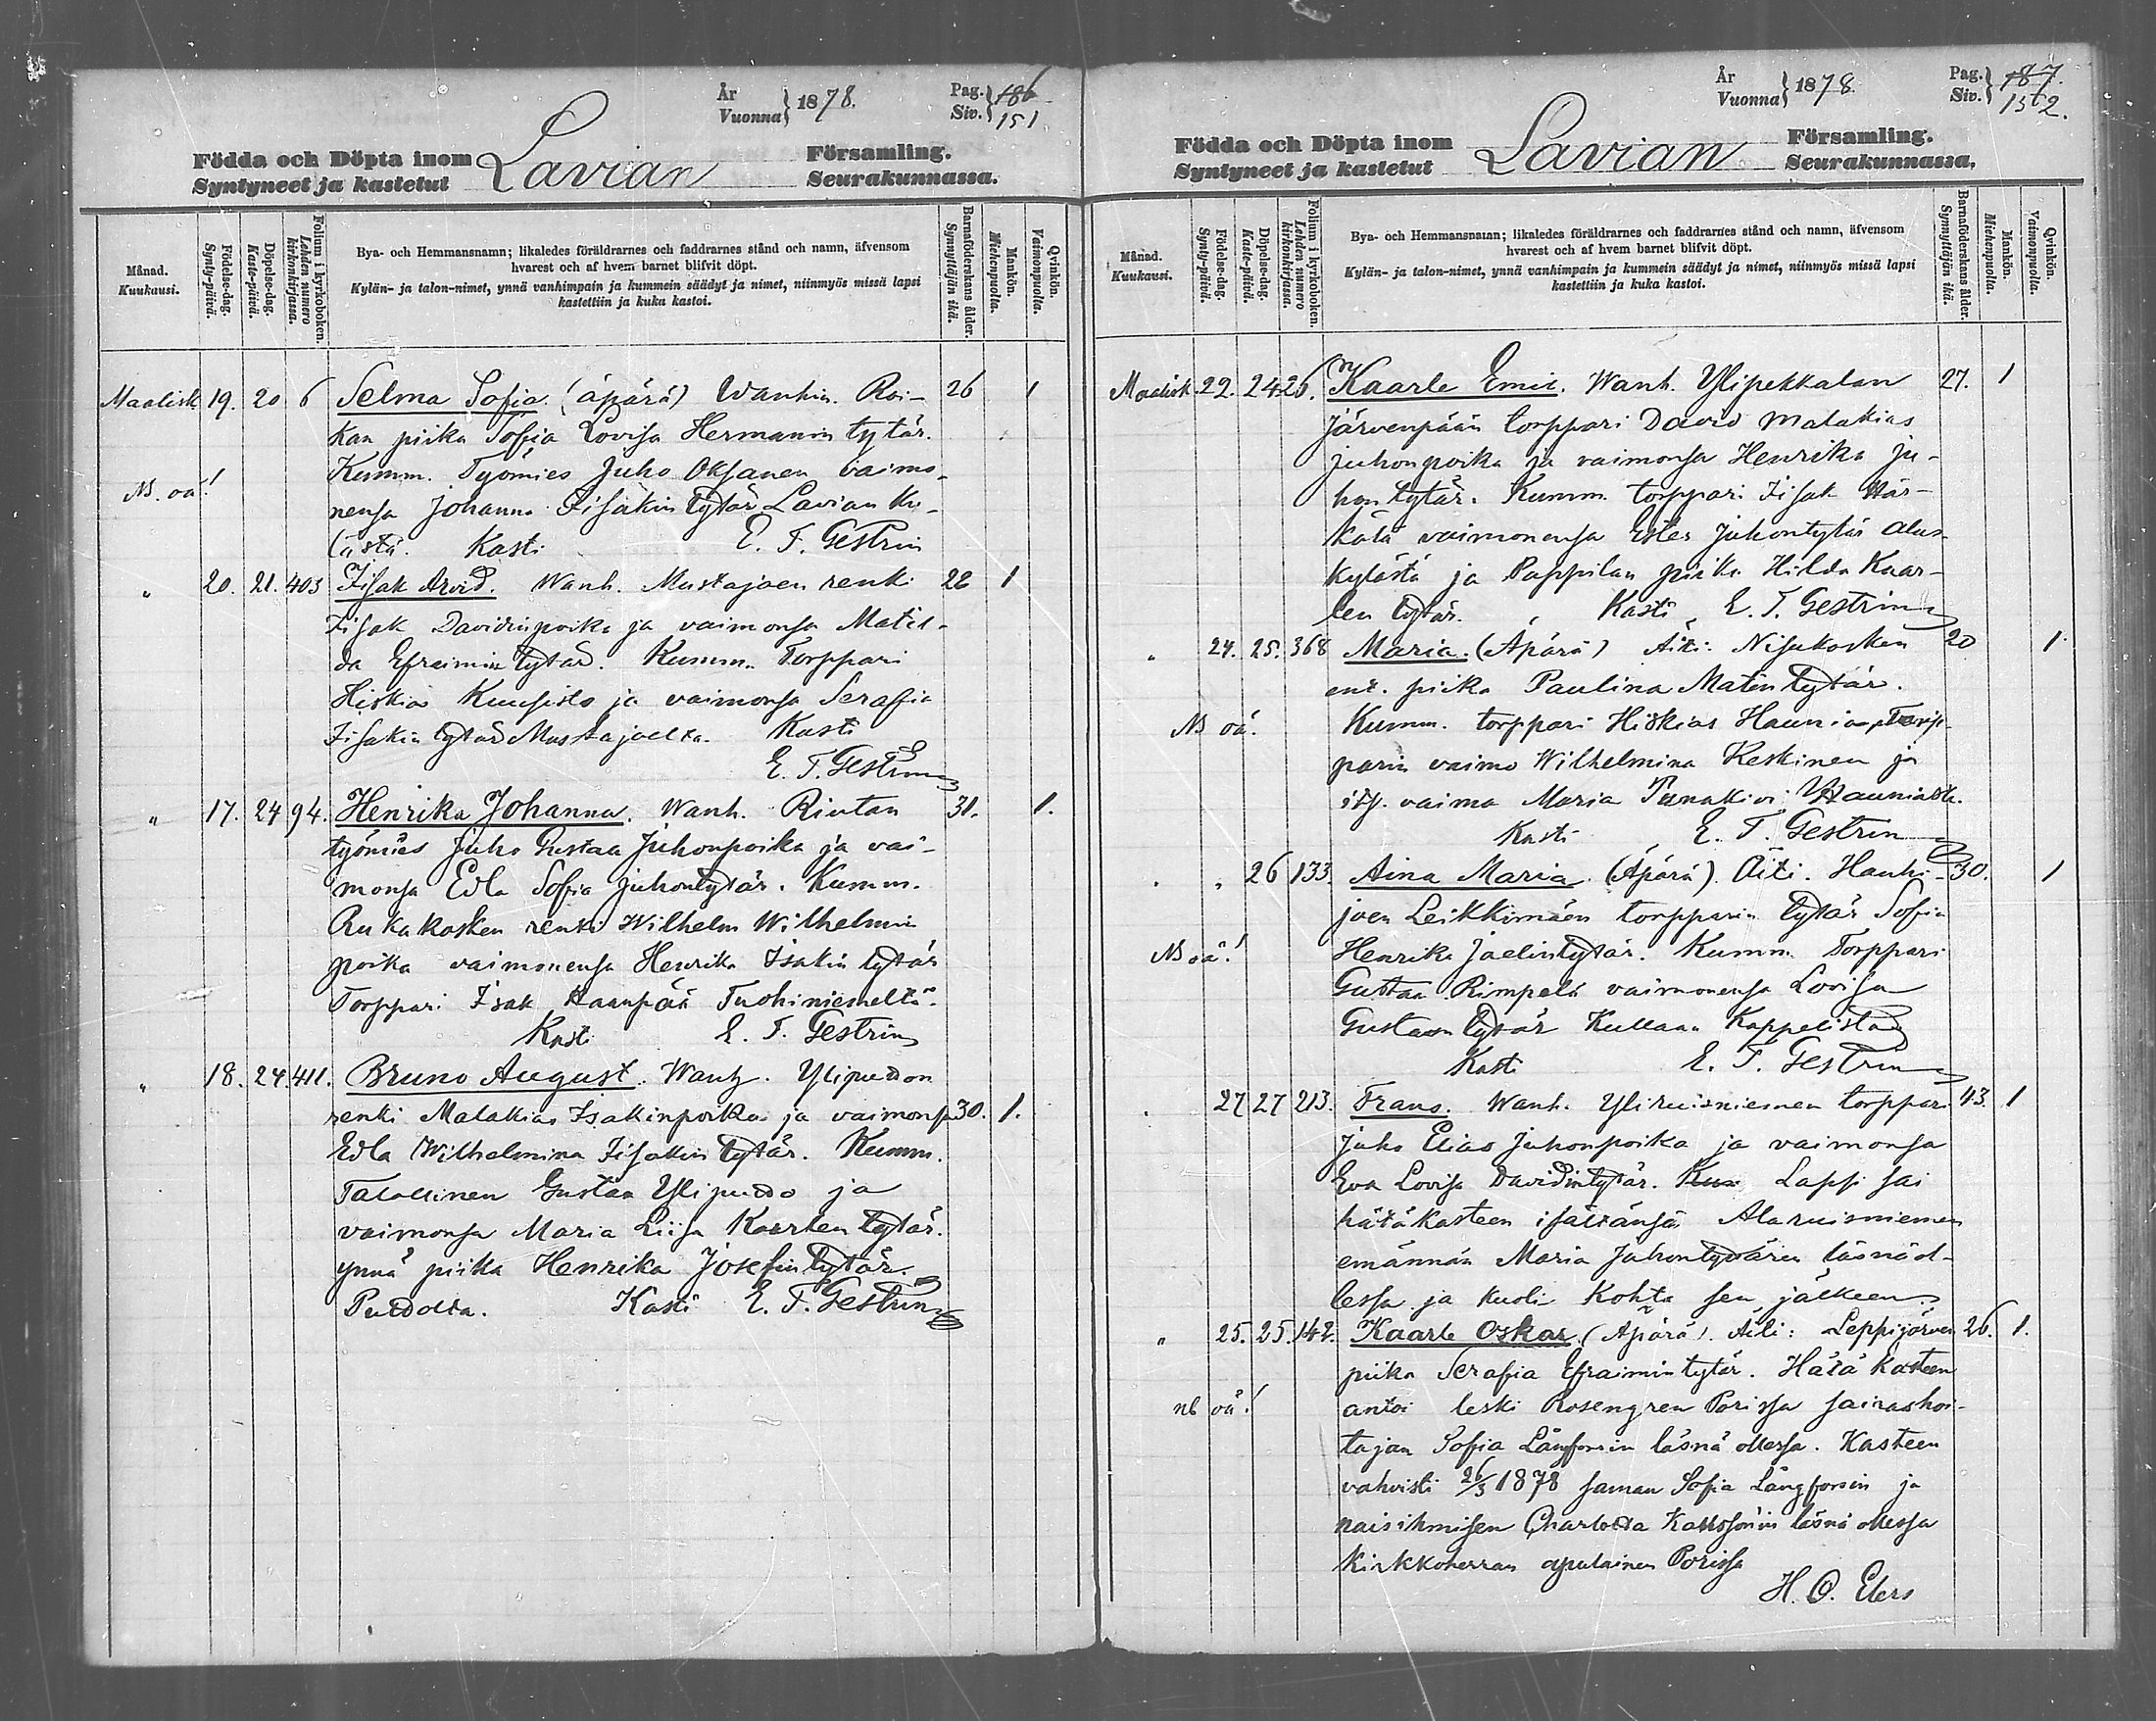 År
Vuonna } 1878.
Pag.
Siv. } 186
151
Födda och Döpta inom
Syntyneet ja kastetut
Lavian
Församling.
Seurakunnassa.
Månad.
Kuukausi.
Födelse-dag.
Synty-päivä.
Döpelse-dag.
Kaste-päivä.
Folium i kyrkoboken.
Lehden numero
kirkonkirjassa.
Bya- och Hemmansnamn; likaledes föräldrarnes och faddrarnes stånd och namn, äfvensom
hvarest och af hvem barnet blifvit döpt.
Kylän- ja talon-nimet, ynnä vanhimpain ja kummein säädyt ja nimet, niinmyös missä lapsi
kastettiin ja kuka kastoi.
Barnaföderskans ålder.
Synnyttäjän ikä.
Mankön.
Miehenpuolta.
Qvinkön.
Vaimonpuolta.
Maalisk 19. 20 6 Selma Sofia. (äpärä) Wanhin. Roi- 26 1
kan piika Sofia Lovisa Hermanin tytär.
Kumm. Työmies Juho Oksanen vaimo-
NB. oä!
nensa Johanna Iisakin tytär Lavian ky-
lästä. Kasti E. F. Gestrin
" 20. 21. 403 Iisak Arvid. Wanh. Mustajoen renki 28 1
Iisak Davidinpoika ja vaimonsa Matil-
da Efraimin tytär. Kumm. Torppari
Hiskias Kuusisto ja vaimonsa Serafia
Iisakin tytär Mustajoelta. Kasti
E. F. Gestrin
" 17. 24 94. Henrika Johanna. Wanh. Riutan 31. 1.
työmies Juho Gustaa Juhonpoika ja vai-
monsa Edla Sofia Juhontytär. Kumm.
Rukakosken renki Wilhelm Wilhelmin
poika vaimonensa Henrika Isakin tytär
Torppari Isak Haanpää Tuohiniemeltä.
Kasti E. F. Gestrin
" 18. 24 411. Bruno August. Wanh. Ylipuddon
renki Malakias Isakinpoika ja vaimonsa 30. 1.
Edla Wilhelmina Iisakin tytär. Kumm.
Talollinen Gustaa Ylipuddo ja
vaimonsa Maria Liisa Kaarlen tytär.
ynnä piika Henrika Josefin tytär.
Puddolta. Kasti E. F. Gestrin
År
Vuonna } 1878.
Pag.
Siv. } 187.
152.
Födda och Döpta inom
Syntyneet ja kastetut
Lavian
Församling.
Seurakunnassa.
Månad.
Kuukausi.
Födelse-dag.
Synty-päivä.
Döpelse-dag.
Kaste-päivä.
Folium i kyrkoboken.
Lehden numero
kirkonkirjassa.
Bya- och Hemmansnamn; likaledes föräldrarnes och faddrarnes stånd och namn, äfvensom
hvarest och af hvem barnet blifvit döpt.
Kylän- ja talon-nimet, ynnä vanhimpain ja kummein säädyt ja nimet, niinmyös missä lapsi
kastettiin ja kuka kastoi.
Barnaföderskans ålder.
Synnyttäjän ikä.
Mankön.
Miehenpuolta.
Qvinkön.
Vaimonpuolta.
Maalisk. 22. 24 26. Kaarle Emil. Wanh. Ylipekkalan 27. 1
Järvenpään torppari David Malakias
Juhonpoika ja vaimonsa Henrika Ju-
hon tytär. Kumm. torppari Iisak Här-
kälä vaimonensa Ester Juhontytär Alus-
kylästä ja Pappilan piika Hilda Kaar-
len tytär. Kasti E. F. Gestrin
" 24. 25. 368 Maria. (Äpärä) Äiti. Nisukosken 20 1.
ent. piika Paulina Matin tytär.
NB oä.
Kumm. torppari Hiskias Haunia, Torp-
parin vaimo Wilhelmina Keskinen ja
itst. vaimo Maria Haunialta.
Kasti E. F. Gestrin
" " 26 133. Aina Maria (Äpärä). Äiti. Hanhi- 30. 1
joen Leikkimäen torpparin tytär Sofia
NB oä!
Henrika Joelintytär. Kumm. Torppari
Gustaa Rimpelä vaimonensa Lovisa
Gustaan tytär Kullaan Kappelista
Kasti E. F. Gestrin
" 27 27 213. Frans. Wanh. Yliruisniemen torppari 43. 1
Juho Elias Juhonpoika ja vaimonsa
Eva Lovisa Davidintytär. Kum Lapsi sai
hätäkasteen isältänsä Alaruisniemen
emännän Maria Juhontyttären läsnäol-
lessa ja kuoli kohta sen jälkeen.
" 25. 25. 142. Kaarle Oskar. (Äpärä). Äiti: Leppijärven 26. 1.
piika Serafia Efraimin tytär. Hätä kasteen
nb oä!
antoi leski Rosengren Porissa sairashoi-
tajan Sofia Långforsin läsnä ollessa. Kasteen
vahvisti 26/3 1878 saman Sofia Långforsin ja
naisihmisen Charlotta läsnä ollessa
kirkkoherran apulainen Porissa
H. O. Elers